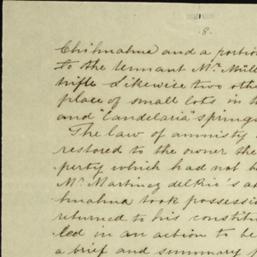 8.
Chihuahua and a portion
to the tennant Mr. Müll
trifle Likewise two othe
place of small lots in t
and "Candelaria" springs
The law of amnisty
restored to the owner the
perty which had not b
Mr. Martinez del Rio's a
huahua took possessi
returned to his constitu
led in an action to be
a brief and summary